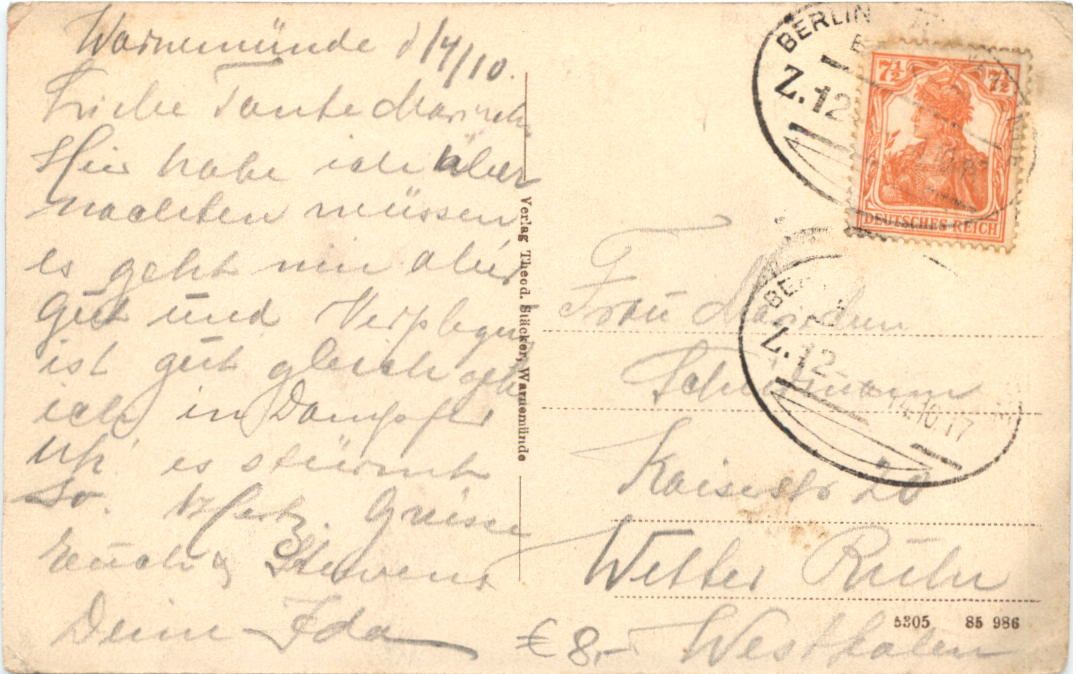 Warnemünde d/14/10.
Liebe Tante
Hier habe ich über
nachten müssen
es geht mir aber
gut und Verplegung
ist gut gleich geh
ich in Dampfer
es stürmt
so. Hertz. Grüsse
Euch &
Deine Ida
Verlag Theod. Stäcker, Warnemünde
BERLIN
Z.12
7½ 7½
DEUTSCHES REICH
BE
Z.12
14.10.17
Frau
Kaiserstr 20
Wetter Ruhr
Westfalen
5305 85 986
€ 8,-